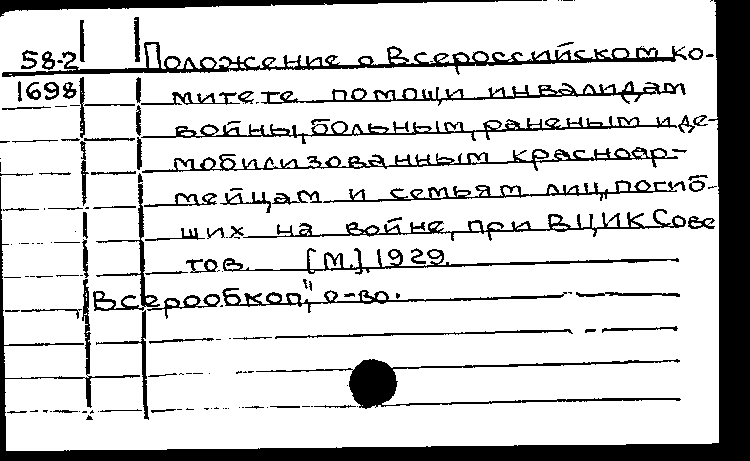 58-2 Положение о Всероссийском ко-
1698 митете помощи инвалидам
войны, больным, раненым и де-
мобилизованным красноар-
мейцам и семьям лиц, погиб-
ших на войне, при ВЦИК Сове
тов. [М.], 1929.
"Всерообкоп", о-во.